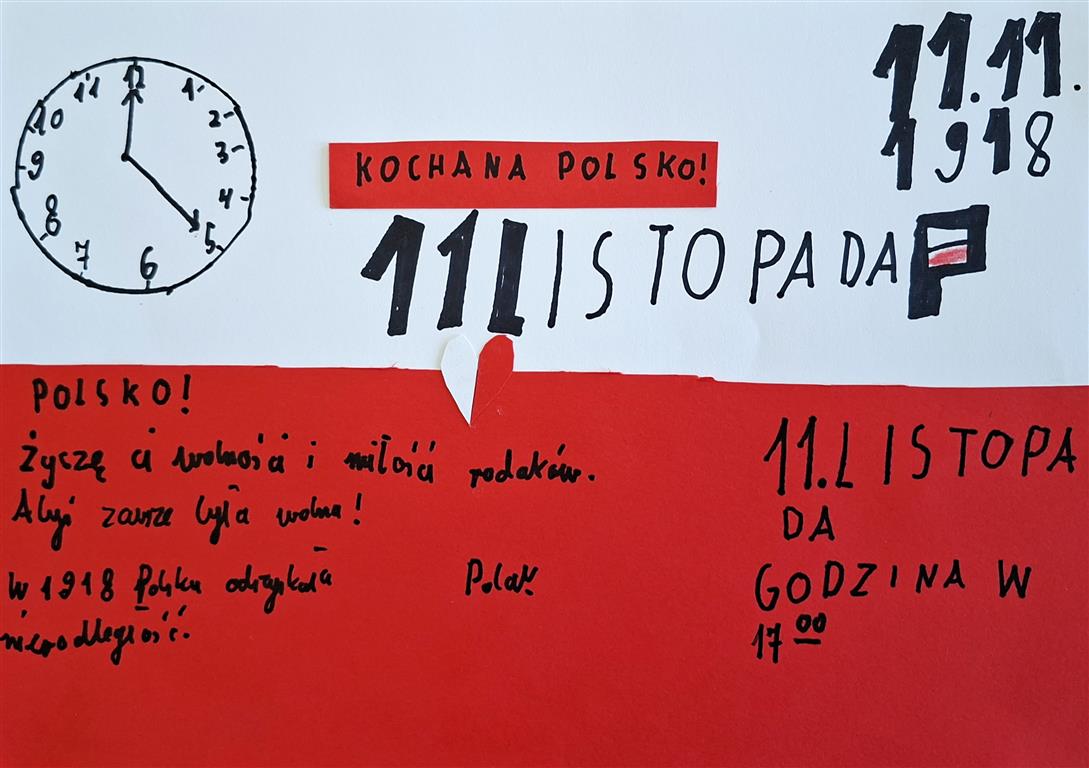 12
11
1
10
2
9
3
8
4
7
5
6
11.11.
1918
KOCHANA POLSKO!
11 LISTOPADA P
POLSKO!
Życzę ci wolności i miłości rodaków.
Abyś zawsze była wolna!
W 1918 Polska odzyskała
niepodległość.
Polak
11.LISTOPA
DA
GODZINA W
17 00